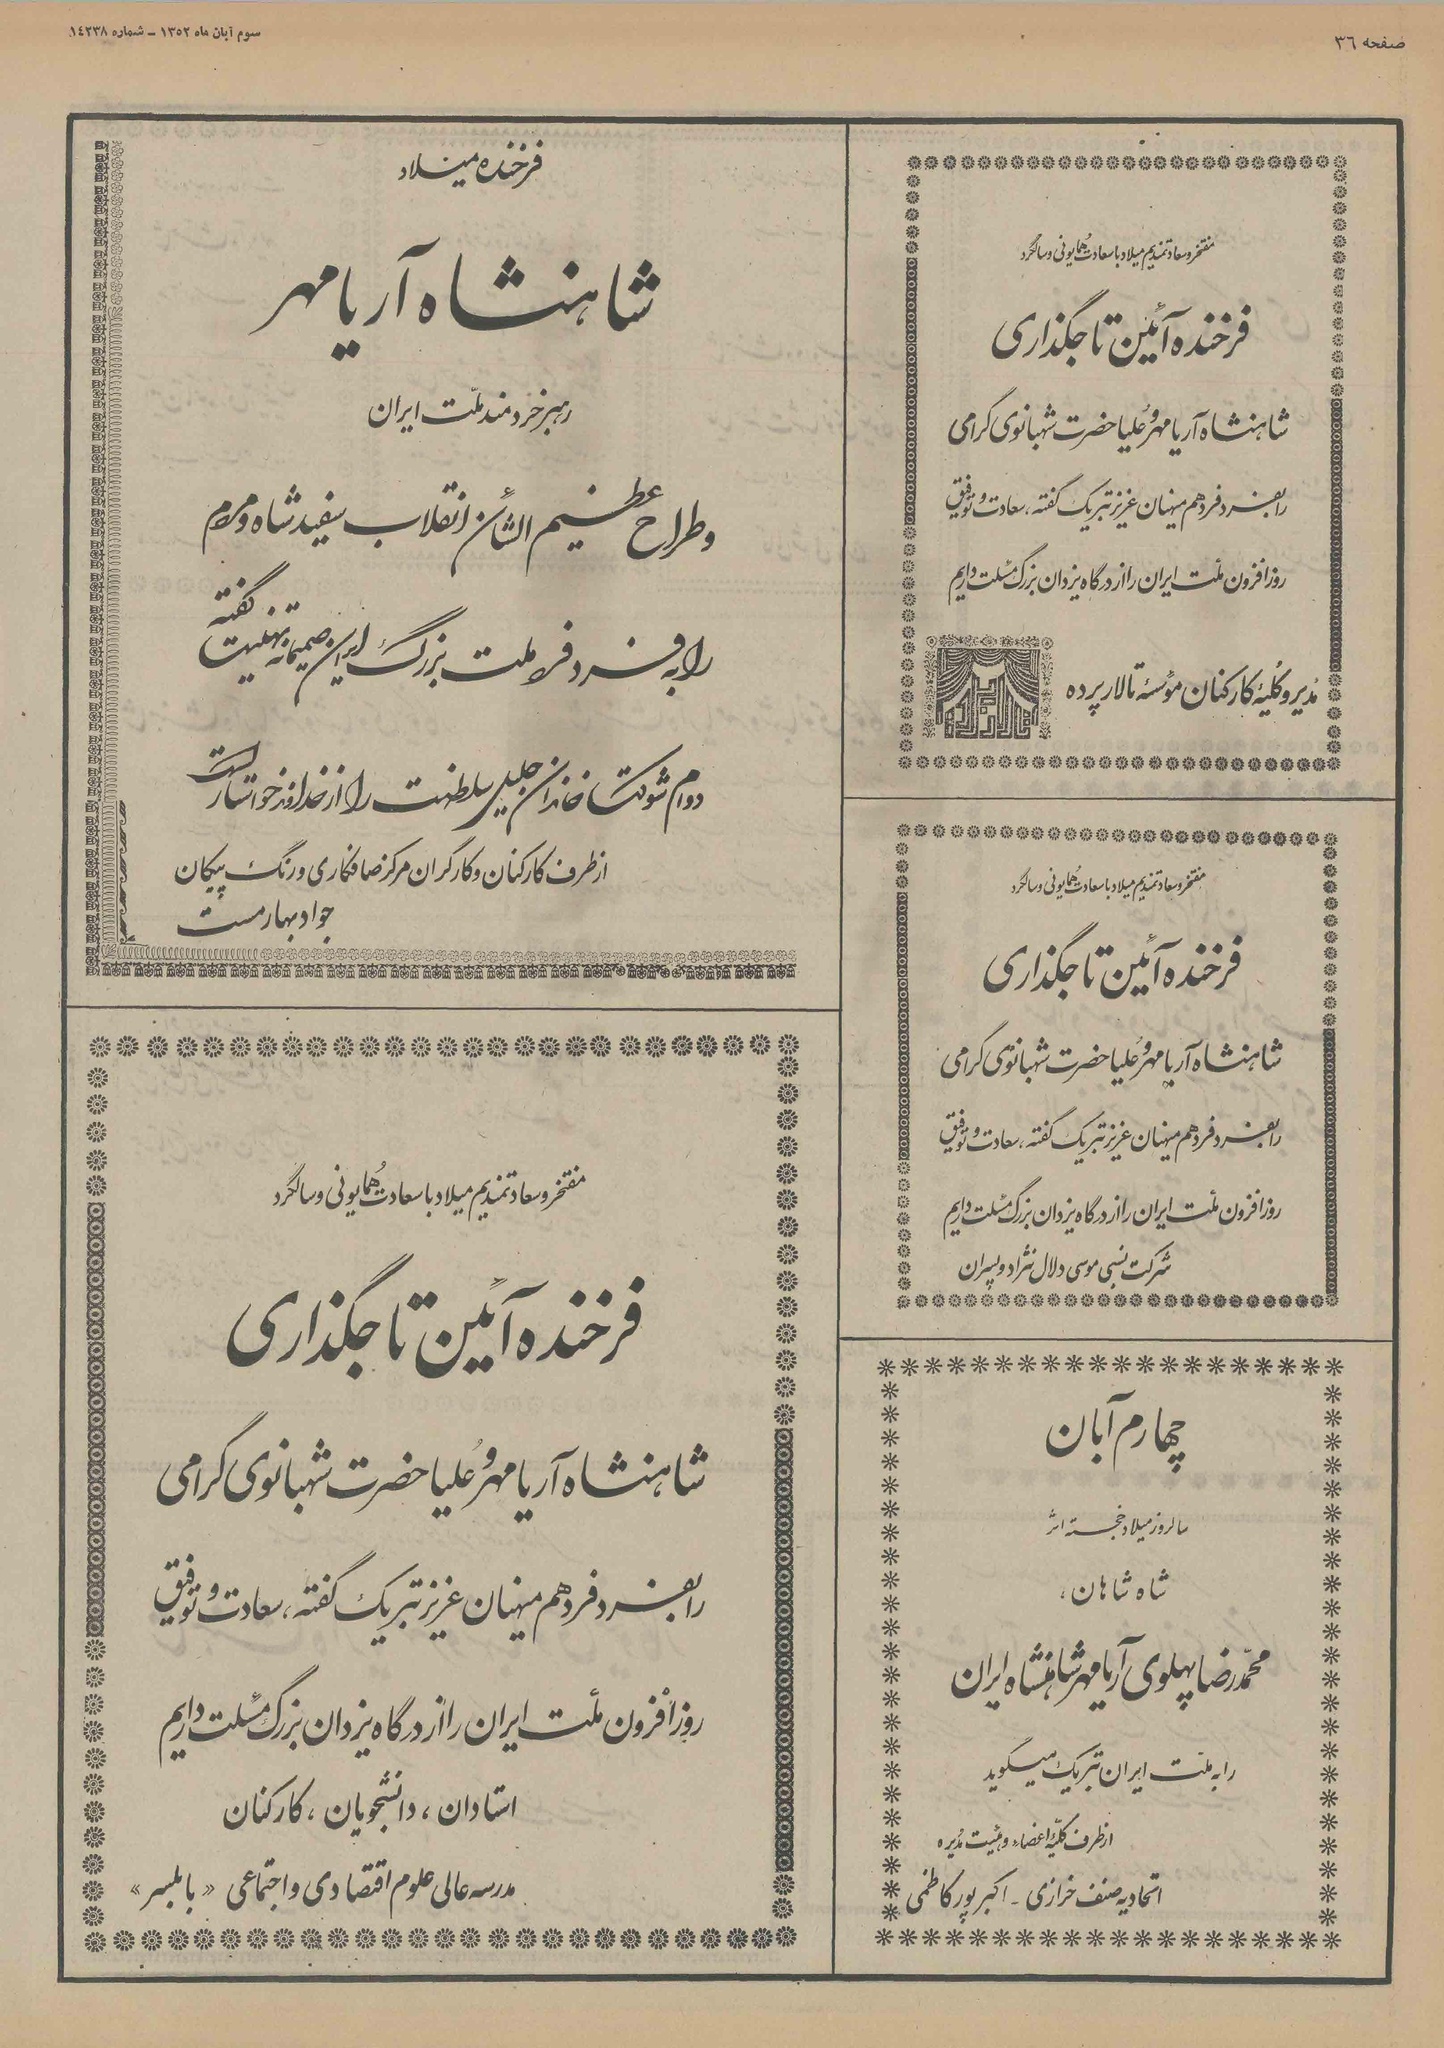 صفحه ۳۶
سوم آبان ماه ۱۳۵۲ ـ شماره ۱۴۲۳۸
مفتخر و سعادتمندیم میلاد با سعادت همایونی و سالگرد
فرخنده آئین تاجگذاری
شاهنشاه آریامهر و علیاحضرت شهبانوی گرامی
را بفرد فرد هم میهنان عزیز تبریک گفته، سعادت و توفیق
روزافزون ملت ایران را از درگاه یزدان بزرگ مسئلت داریم
مدیر و کلیه کارکنان مؤسسه تالار پرده
تالار پرده
مفتخر و سعادتمندیم میلاد با سعادت همایونی و سالگرد
فرخنده آئین تاجگذاری
شاهنشاه آریامهر و علیاحضرت شهبانوی گرامی
را بفرد فرد هم میهنان عزیز تبریک گفته، سعادت و توفیق
روزافزون ملت ایران را از درگاه یزدان بزرگ مسئلت داریم
شرکت نسبی موسی دلال نژاد و پسران
چهارم آبان
سالروز میلاد خجسته اثر
شاه شاهان،
محمدرضا پهلوی آریامهر شاهنشاه ایران
را به ملت ایران تبریک میگوید
از طرف کلیه اعضاء و هیئت مدیره
اتحادیه صنف خرازی ـ اکبر پور کاظمی
فرخنده میلاد
شاهنشاه آریامهر
رهبر خردمند ملت ایران
و طراح عظیم الشأن انقلاب سفید شاه و مردم
را به فرد فرد ملت بزرگ ایران صمیمانه تهنیت گفته
دوام شوکت خاندان جلیل سلطنت را از خداوند خواستار است
از طرف کارکنان و کارگران مرکز صافکاری و رنگ پیکان
جواد بهارمست
مفتخر و سعادتمندیم میلاد با سعادت همایونی و سالگرد
فرخنده آئین تاجگذاری
شاهنشاه آریامهر و علیاحضرت شهبانوی گرامی
را بفرد فرد هم میهنان عزیز تبریک گفته، سعادت و توفیق
روزافزون ملت ایران را از درگاه یزدان بزرگ مسئلت داریم
استادان، دانشجویان، کارکنان
مدرسه عالی علوم اقتصادی و اجتماعی «بابلسر»